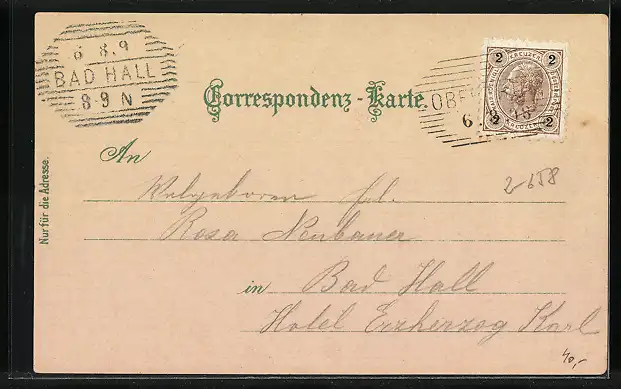 6 8.9
BAD HALL
8-9 N
Correspondenz-Karte.
2 KREUZER 2
2 KREUZER 2
OBE
6
15
An
Nur für die Adresse.
Wolgeboren frl.
2-658
Rosa Neubauer
in Bad Hall
Hotel Erzherzog Karl
40,-